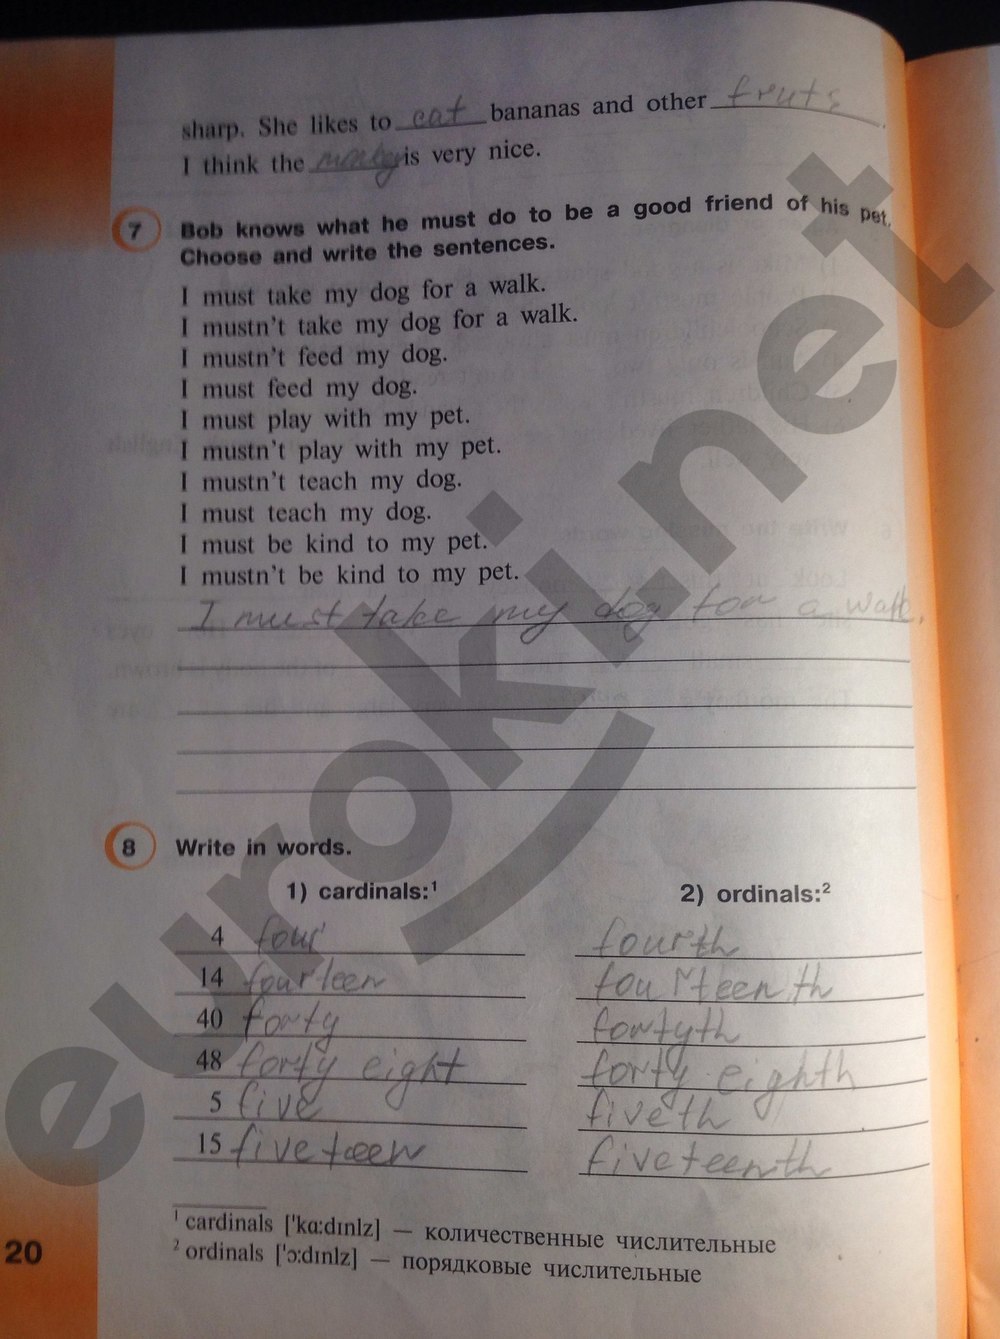 sharp. She likes to eat bananas and other fruts.
I think the monkey is very nice.
7 Bob knows what he must do to be a good friend of his pet.
Choose and write the sentences.
I must take my dog for a walk.
I mustn't take my dog for a walk.
I mustn't feed my dog.
I must feed my dog.
I must play with my pet.
I mustn't play with my pet.
I mustn't teach my dog.
I must teach my dog.
I must be kind to my pet.
I mustn't be kind to my pet.
I must take my dog for a walk.
8 Write in words.
1) cardinals:¹ 2) ordinals:²
4 four fourth
14 fourteen fourteenth
40 forty fortyth
48 forty eight forty eighth
5 five fiveth
15 fiveteen fiveteenth
¹ cardinals ['kɑ:dınlz] — количественные числительные
² ordinals ['ɔ:dınlz] — порядковые числительные
20
euroki.net